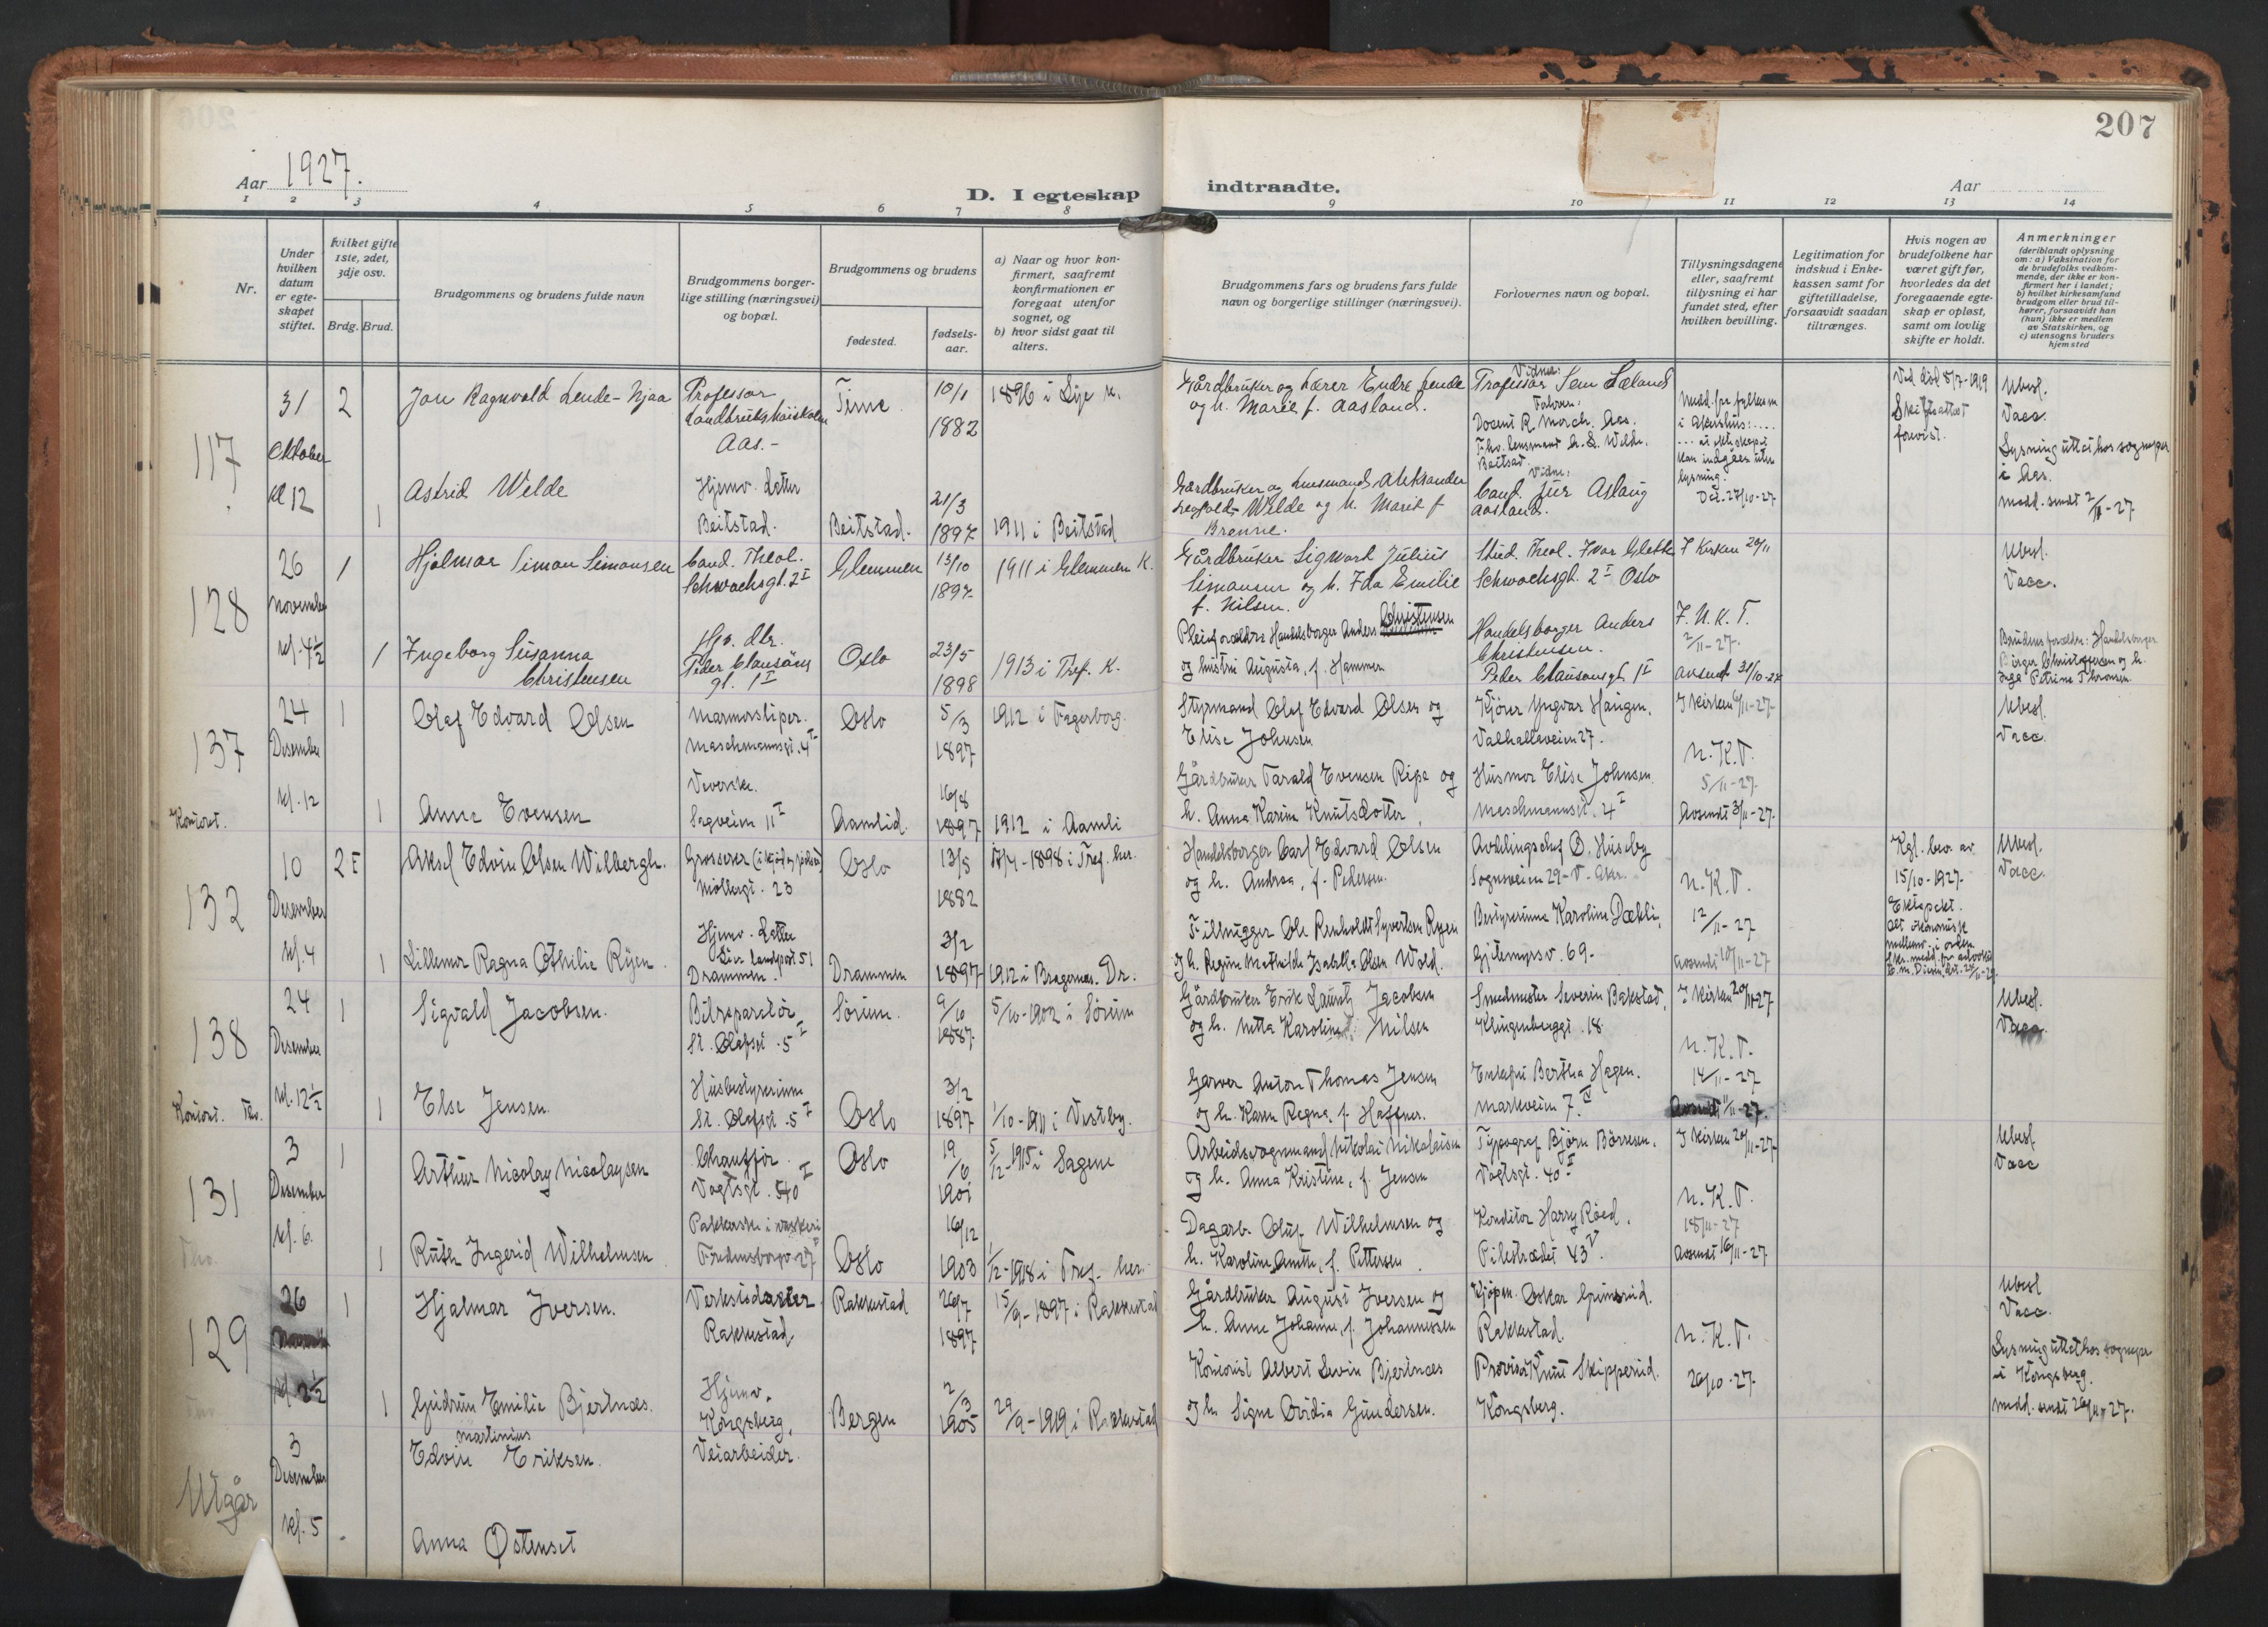 207
Aar 1927.
D. I egteskap indtraadte.
Aar
1 2 3 4 5 6 7 8 9 10 11 12 13 14
Nr.
Under hvilken datum er egteskapet stiftet.
Hvilket gifte 1ste, 2det, 3dje osv.
Brdg. Brud.
Brudgommens og brudens fulde navn
Brudgommens borgerlige stilling (næringsvei) og bopæl.
Brudgommens og brudens
fødested.
fødselsaar.
a) Naar og hvor konfirmert, saafremt konfirmationen er foregaat utenfor sognet, og
b) hvor sidst gaat til alters.
Brudgommens fars og brudens fars fulde navn og borgerlige stillinger (næringsvei).
Forlovernes navn og bopæl.
Tillysningsdagene eller, saafremt tillysning ei har fundet sted, efter hvilken bevilling.
Legitimation for indskud i Enkekassen samt for giftetilladelse, forsaavidt saadan tiltrænges.
Hvis nogen av brudefolkene har været gift før, hvorledes da det foregaaende egteskap er opløst, samt om lovlig skifte er holdt.
Anmerkninger
(deriblandt oplysning om: a) Vaksination for de brudefolks vedkommende, der ikke er konfirmert her i landet; b) hvilket kirkesamfund brudgom eller brud tilhører, forsaavidt han (hun) ikke er medlem av Statskirken, og c) utensogns bruders hjemsted
117
31 Oktober kl 12
2
Jon Ragnvald Lende-Njaa
Professor Landbrukshøiskolen Aas.-
Time
10/1 1882
1896 i Lye k.
Gårdbruker og Lærer Endre Lende og h. Marie f. Aasland.
Vidner: Professor Sem Sæland
Forlover: Docent R. Mørch. Aas.
Fhv. lensmand A. L. Welde. Beitstad.
Medd. fra fylkesm. i Akershus: .... ... at ekteskapet kan indgåes uten lysning. Dat. 27/10-27
Ved død 5/7-1919 Skifteattest forevist.
Ubesl. Vacc. Lysning uttat hos sogneprest i Aas. medd. sendt 2/11-27
1
Astrid Welde
Hjemv. datter Beitstad.
Beitstad.
21/3 1897
1911 i Beitstad
Gårdbruker og lensmand Aleksander Welde og h. Marit f. Brenne.
Vidne: Cand. jur Aslaug Aasland.
128
26 November kl. 4½
1
Hjalmar Simon Simonsen
Cand. Theol. Schwachsgt. 2 I
Glemmen
13/10 1897
1911 i Glemmen K.
Gårdbruker Sigward Julius Simonsen og h. Ida Emilie f. Nilsen.
Stud. Theol. Ivar Glette Schwachsgt. 2 I Oslo
I Kirken 20/11
Ubesl. Vacc.
1
Ingeborg Susanna Christensen
Hjv. dtr. Peder Clausøns gt. 1 I
Oslo
23/5 1898
1913 i Tref. K.
Pleieforældre Handelsborger Anders Christensen og hustru Augusta, f. Hammer
Handelsborger Anders Christensen. Peder Clausønsgt 1 I
F. N. K. T. 2/11-27. avsendt 31/10-27
Brudens forældre: Handelsborger Birger Christoffersen og h. Inga Petrine Thoresen.
137
Kontoret.
24 Desember kl. 12
1
Olaf Edvard Olsen
Marmorsliper. Maschmannsgt. 4 I
Oslo
5/3 1897
1912 i Fagerborg.
Styrmand Olof Edvard Olsen og Elise Johnsen
Kjører Yngvar Haugen. Valhallaveien 27.
I kirken 6/11-27
Ubesl. Vacc.
1
Anna Evensen
Veverske. Sagveien 11 I
Aamlid.
16/8 1897
1912 i Aamli
Gårdbruker Tarald Evensen Ripe og h. Anna Karine Knutsdotter,
Husmor Elise Johnsen. Maschmannsgt. 4 I
N. K. T. 5/11-27. Avsendt 3/11-27.
132
10 Desember kl. 4
2 F
Aksel Edvin Olsen Wilbergh.
Grosserer Møllergt. 23
Oslo
13/5 1882
17/4-1898 i Tref. her.
Handelsborger Carl Edvard Olsen og h. Andrea, f. Pedersen.
Avdelingschef B. Huseby Sognsveien 29-V. Akr.
N. K. T. 12/11-27 avsendt 10/11-27
Kgl. bev. av 15/10-1927. Ektepakt. Alt økonomisk mellemv. i orden
Ubesl. Vacc.
1
Lillemor Ragna Othilie Ryen.
Hjemv. Datter Drammen.
Drammen
3/2 1897
1912 i Bragernes. Dr.
Filhugger Ole Renholdt Syvertsen Ryen og h. Regine Mathilde Isabella Olsen Wold.
Bestyrerinne Karoline Dæhli, Gjetemyrsv. 69.
138
Kontoret.
24 Desember kl. 12½
1
Sigvald Jacobsen.
Bilreparatør St. Olafsgt. 5 I
Sørum.
9/10 1887
5/10-1902 i Sørum
Gårdbruker Erik Lauritz Jacobsen og h. Netta Karoline Nilsen
Smedmester Severin Bakstad, Klingenberggt. 18
I kirken 20/11-27
Ubesl. Vacc.
1
Else Jensen.
Husbestyrerinne St. Olafsgt. 5 I
Oslo
3/2 1897
1/10-1911 i Vestby.
Garver Anton Thomas Jensen og h. Karen Ragna, f. Haffner.
Enkefru Bertha Hagen. Markveien 7. IV
N. K. T. 14/11-27 Avsendt 11/11-27.
131
3 Desember kl. 6.
1
Arthur Nicolay Nicolaysen
Chauffør. Vogtsgt. 40 I
Oslo
19/6 1901
5/12-1915 i Sagene
Arbeidsvognmand Nikolai Nikolaisen og h. Anna Kristine, f. Jensen
Typograf Bjørn Børresen. Vogtsgt. 40 I
I kirken 20/11-27
Ubesl Vacc
1
Ruth Ingerid Wilhelmsen
Pakkerske i vaskeri Fredensborgv. 27
Oslo
16/12 1903
1/12-1918 i Tref. her.
Dagarb. Oluf Wilhelmsen og h. Karoline Anette, f. Pettersen.
Konditor Harry Røed. Pilestrædet 43 V.
N. K. T. 18/11-27 Avsendt 16/11-27
129
26 kl. 2½
1
Hjalmar Iversen.
Verkstedeier Rakkestad.
Rakkestad
26/7 1897
15/9-1897 i Rakkestad
Gårdbruker August Iversen og h. Anne Johanne, f. Johannessen
Kjøpm. Oskar Grimsrud. Rakkestad.
N. K. T. 26/10-27.
Ubesl Vacc. Lysning uttat hos sognepr i Kongsberg. medd. sendt 26/11-27.
1
Gudrun Emilie Bjertnæs.
Hjemv. Kongsberg.
Bergen
2/3 1905
29/9-1919 i Rakkestad
Kontorist Albert Levin Bjertnæs og h Signe Ovidia Gundersen.
Provisor Knut Skipperud. Kongsberg.
Utgår
3 Desember kl. 5
Edvin Martinius Eriksen.
Veiarbeider.
Anna Østenset